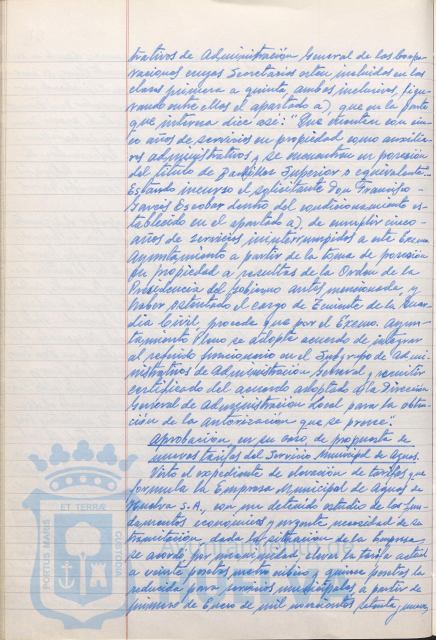 trativos de Administración General de las Corpo-
raciones cuyas Secretarías estén incluidas en las
clases primera a quinta, ambas inclusive, figu-
rando entre ellos el apartado a), que en la parte
que interesa dice así: "Que cuenten con cin-
co años de servicios en propiedad como auxilia-
res administrativos y se encuentren en posesión
del título de Bachiller Superior o equivalente...
Estando incurso el solicitante Don Francisco-
García Escobar dentro del condicionamiento es-
tablecido en el apartado a), de cumplir cinco-
años de servicios ininterrumpidos a este Excmo.
Ayuntamiento a partir de la toma de posesión
en propiedad a resultas de la Orden de la
Presidencia del Gobierno antes mencionada, y
haber ostentado el cargo de Teniente de la Guar-
dia Civil, procede que por el Excmo. Ayun-
tamiento Pleno se adopte acuerdo de integrar
al referido funcionario en el Subgrupo de Admi-
nistrativos de Administración General y remitir
certificado del acuerdo adoptado a la Dirección
General de Administración Local para la obten-
ción de la autorización que se prevé".
Aprobación, en su caso, de propuesta de
nuevas tarifas del Servicio Municipal de Aguas.
Visto el expediente de elevación de tarifas que
formula la Empresa Municipal de Aguas de
Huelva S.A., con un detenido estudio de los fun-
damentos económicos y urgente necesidad de su
tramitación, dada la situación de la Empresa,
se acordó por unanimidad elevar la tarifa actual
a veinte pesetas metro cúbico, quince pesetas la
reducida para servicios municipales, a partir de
primero de Enero de mil novecientos setenta y nueve,
PORTUS MARIS
ET TERRÆ
CUSTODIA